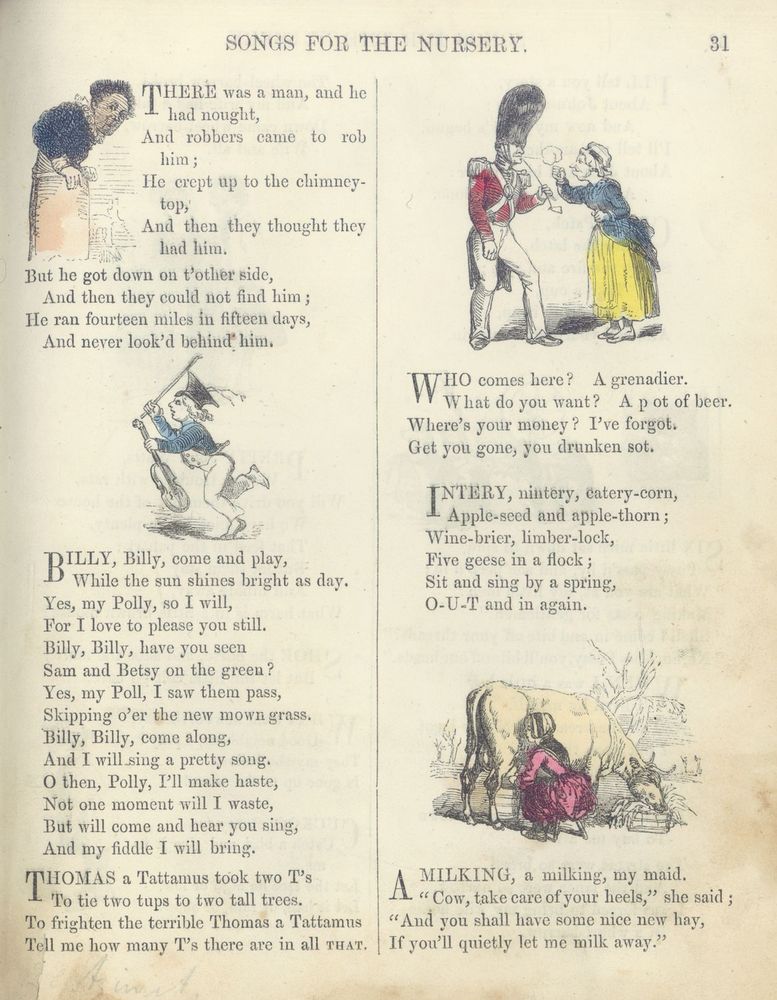 SONGS FOR THE NURSERY.
31
THERE was a man, and he
had nought,
And robbers came to rob
him;
He crept up to the chimney-
top,
And then they thought they
had him.
But he got down on t'other side,
And then they could not find him;
He ran fourteen miles in fifteen days,
And never look'd behind him.
BILLY, Billy, come and play,
While the sun shines bright as day.
Yes, my Polly, so I will,
For I love to please you still.
Billy, Billy, have you seen
Sam and Betsy on the green?
Yes, my Poll, I saw them pass,
Skipping o'er the new mown grass.
Billy, Billy, come along,
And I will sing a pretty song.
O then, Polly, I'll make haste,
Not one moment will I waste,
But will come and hear you sing,
And my fiddle I will bring.
THOMAS a Tattamus took two T's
To tie two tups to two tall trees.
To frighten the terrible Thomas a Tattamus
Tell me how many T's there are in all THAT.
WHO comes here? A grenadier.
What do you want? A p ot of beer.
Where's your money? I've forgot.
Get you gone, you drunken sot.
INTERY, mintery, cutery-corn,
Apple-seed and apple-thorn;
Wine-brier, limber-lock,
Five geese in a flock;
Sit and sing by a spring,
O-U-T and in again.
A MILKING, a milking, my maid.
"Cow, take care of your heels," she said;
"And you shall have some nice new hay,
If you'll quietly let me milk away."